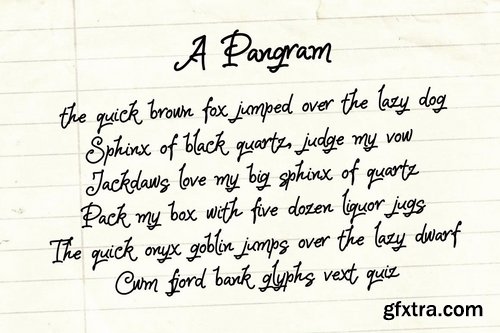 A Pangram
the quick brown fox jumped over the lazy dog
Sphinx of black quartz, judge my vow
Jackdaws love my big sphinx of quartz
Pack my box with five dozen liquor jugs
The quick onyx goblin jumps over the lazy dwarf
Cwm fjord bank glyphs vext quiz
gfxtra.com